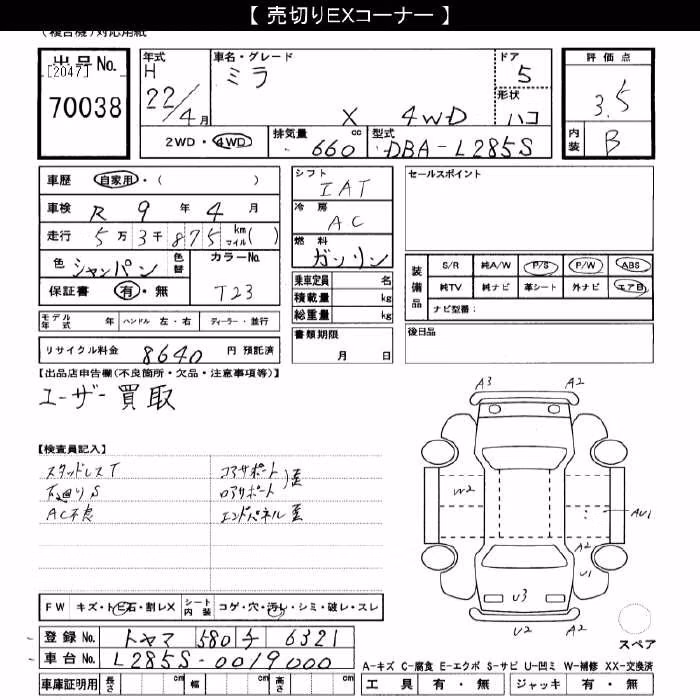 【 売切りEXコーナー 】
(複合機)対応用紙
出品No.
[2047]
70038
年式
H
22/4月
車名・グレード
ミラ
X 4WD
ドア
5
形状
ハコ
2WD・4WD
排気量 660 cc
型式 DBA-L285S
評価点
3.5
内装 B
車歴 自家用・( )
車検 R 9年 4月
走行 5万3千875 km マイル( )
色 シャンパン 色替
カラーNo. T23
保証書 有・無
シフト
IAT
冷房
AC
燃料
ガソリン
乗車定員 名
積載量 kg
総重量 kg
書類期限
月 日
セールスポイント
装備品
S/R 純A/W P/S P/W ABS
純TV 純ナビ 革シート 外ナビ エアB
ナビ型番:
後日品
モデル年式 年 ハンドル 左・右 ディーラー・並行
リサイクル料金 8640 円 預託済
【出品店申告欄(不良箇所・欠品・注意事項等)】
ユーザー買取
【検査員記入】
スタッドレスT
下廻りS
AC不良
コアサポート
ロアサポート
}歪
エンドパネル歪
A3 A2
W2
AU1
A2
U1
U3
U2 A2
スペア
FW キズ・トビ石・割レX
シート内装 コゲ・穴・汚レ・シミ・破レ・スレ
登録No. トヤマ 580 チ 6321
車台No. L285S-0019000
車庫証明用 長さ cm 幅 cm 高さ cm
A-キズ C-腐食 E-エクボ S-サビ U-凹ミ W-補修 XX-交換済
工具 有・無 ジャッキ 有・無